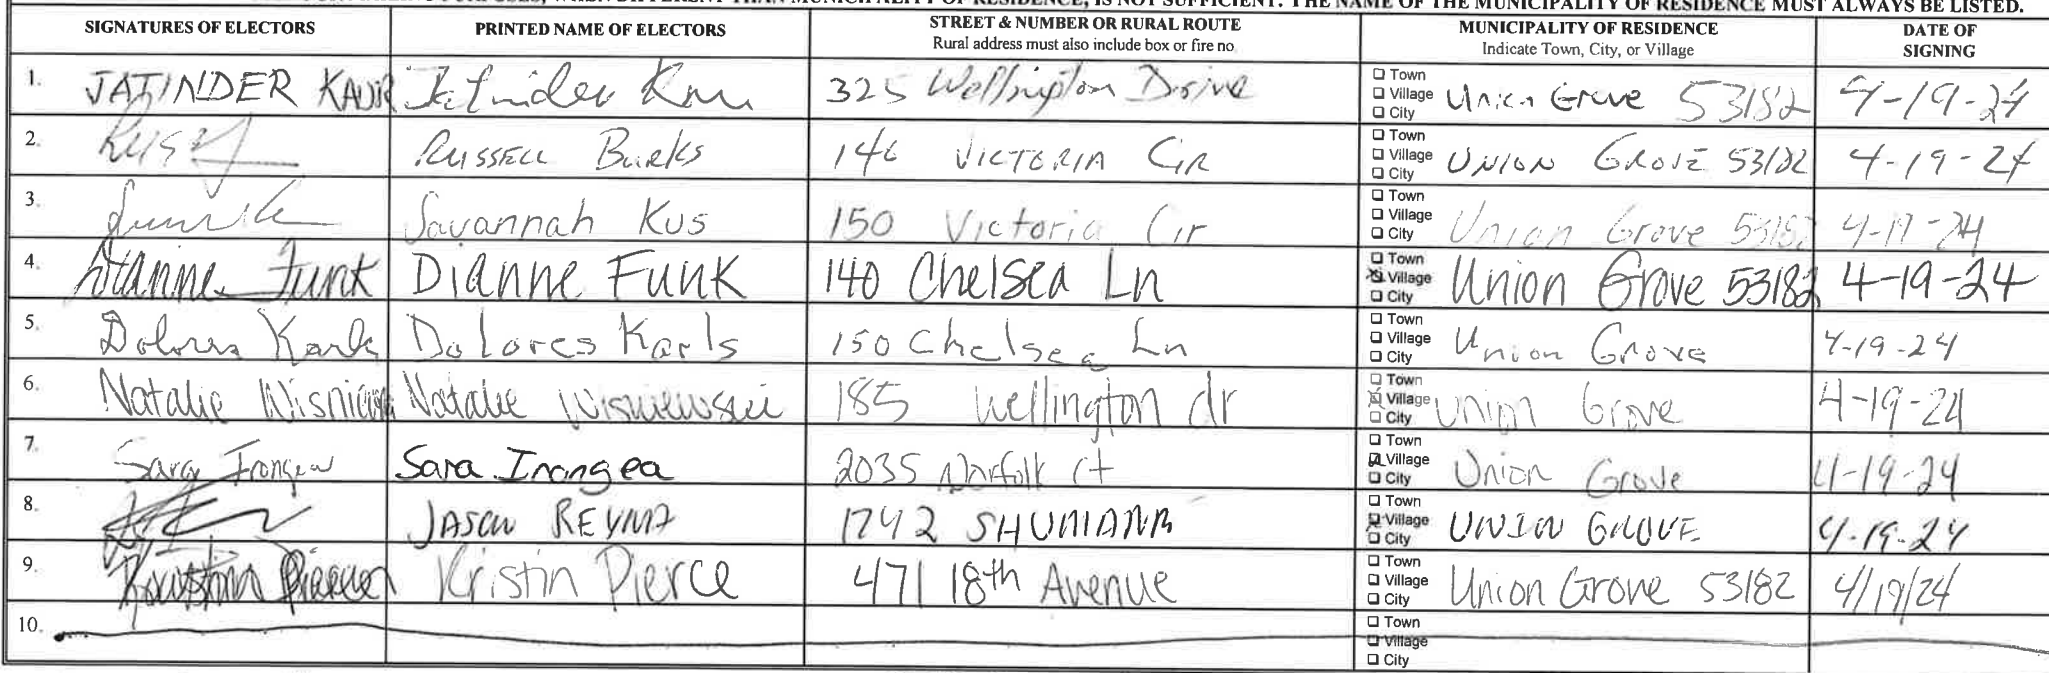 RESIDENCE, IS NOT SUFFICIENT. THE NAME OF THE MUNICIPALITY OF RESIDENCE MUST ALWAYS BE LISTED.
SIGNATURES OF ELECTORS PRINTED NAME OF ELECTORS STREET & NUMBER OR RURAL ROUTE MUNICIPALITY OF RESIDENCE DATE OF
Rural address must also include box or fire no Indicate Town, City, or Village SIGNING
1. JATINDER KAUR Jatinder Kau 325 Wellington Drive Town Village City Union Grove 53182 4-19-24
2. RUSSELL BURKS 146 VICTORIA CIR Town Village City UNION GROVE 53182 4-19-24
3. Savannah Kus 150 Victoria Cir Town Village City Union Grove 53182 4-19-24
4. Dianne Funk DIANNE FUNK 140 Chelsea Ln Town Village City Union Grove 53182 4-19-24
5. Dolores Karls Dolores Karls 150 Chelsea Ln Town Village City Union Grove 4-19-24
6. Natalie Natalie Wisniewski 185 Wellington dr Town Village City Union Grove 4-19-24
7. Sara Sara Irongea 2035 Norfolk Ct Town Village City Union Grove 4-19-24
8. JASON 1742 Town Village City UNION GROVE 4-19-24
9. Kristin Pierce Kristin Pierce 471 18th Avenue Town Village City Union Grove 53182 4/19/24
10. Town Village City